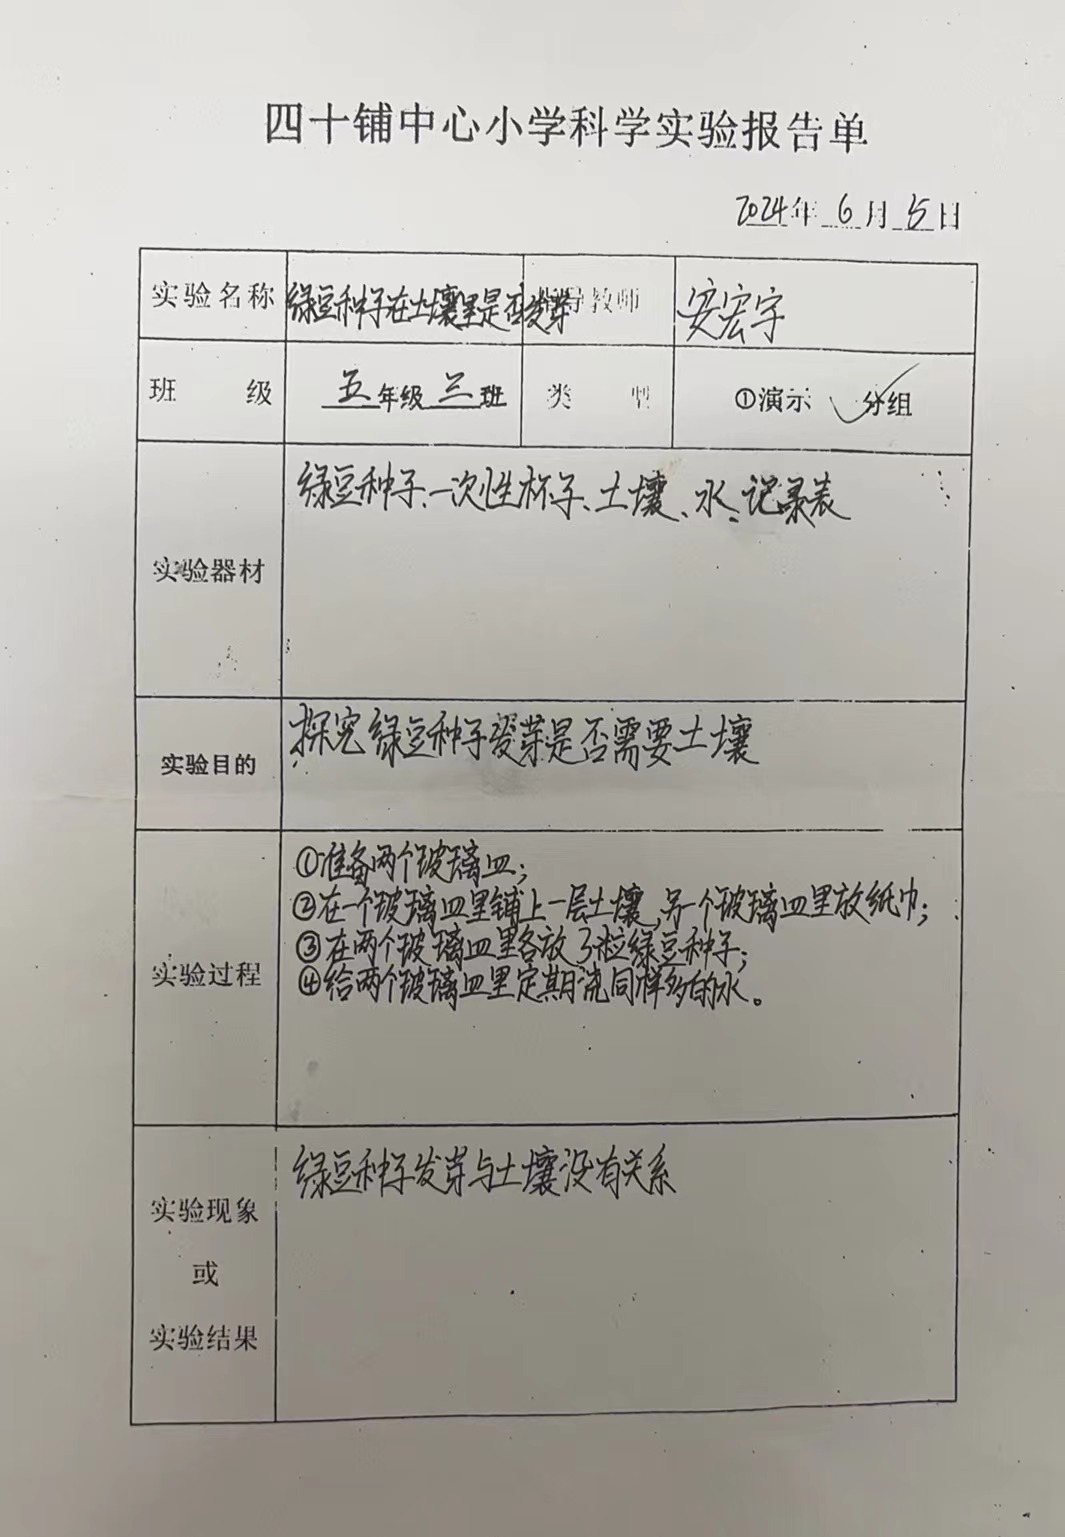 四十铺中心小学科学实验报告单
2024年 6月 5日
实验名称 绿豆种子在土壤里是否发芽 指导教师 安宏宇
班 级 五年级 三 班 类 型 ①演示 分组
实验器材 绿豆种子、一次性杯子、土壤、水、记录表
实验目的 探究绿豆种子发芽是否需要土壤
实验过程 ①准备两个玻璃皿；
②在一个玻璃皿里铺上一层土壤，另一个玻璃皿里放纸巾；
③在两个玻璃皿里各放3粒绿豆种子；
④给两个玻璃皿里定期浇同样多的水。
实验现象 绿豆种子发芽与土壤没有关系
或
实验结果